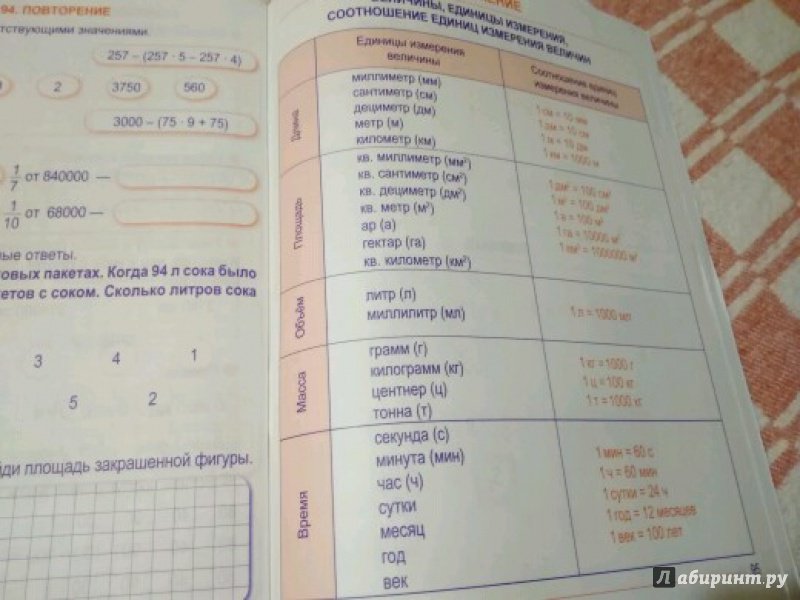 94. ПОВТОРЕНИЕ
тствующими значениями.
257 – (257 · 5 – 257 · 4)
2
3750
560
3000 – (75 · 9 + 75)
1/7 от 840000 —
1/10 от 68000 —
ые ответы.
овых пакетах. Когда 94 л сока было
етов с соком. Сколько литров сока
3
4
1
5
2
йди площадь закрашенной фигуры.
ЕДИНИЦЫ ИЗМЕРЕНИЯ,
СООТНОШЕНИЕ ЕДИНИЦ ИЗМЕРЕНИЯ ВЕЛИЧИН
Единицы измерения
величины
Соотношение единиц
измерения величины
Длина
миллиметр (мм)
сантиметр (см)
дециметр (дм)
метр (м)
километр (км)
1 см = 10 мм
1 дм = 10 см
1 м = 10 дм
1 км = 1000 м
Площадь
кв. миллиметр (мм²)
кв. сантиметр (см²)
кв. дециметр (дм²)
кв. метр (м²)
ар (а)
гектар (га)
кв. километр (км²)
1 дм² = 100 см²
1 м² = 100 дм²
1 а = 100 м²
1 га = 10000 м²
1 км² = 1000000 м²
Объём
литр (л)
миллилитр (мл)
1 л = 1000 мл
Масса
грамм (г)
килограмм (кг)
центнер (ц)
тонна (т)
1 кг = 1000 г
1 ц = 100 кг
1 т = 1000 кг
Время
секунда (с)
минута (мин)
час (ч)
сутки
месяц
год
век
1 мин = 60 с
1 ч = 60 мин
1 сутки = 24 ч
1 год = 12 месяцев
1 век = 100 лет
95
Лабиринт.ру